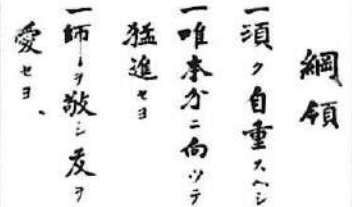 綱領
一須ク自重スヘシ
一唯本分ニ向ツテ
猛進セヨ
一師ヲ敬シ友ヲ
愛セヨ、